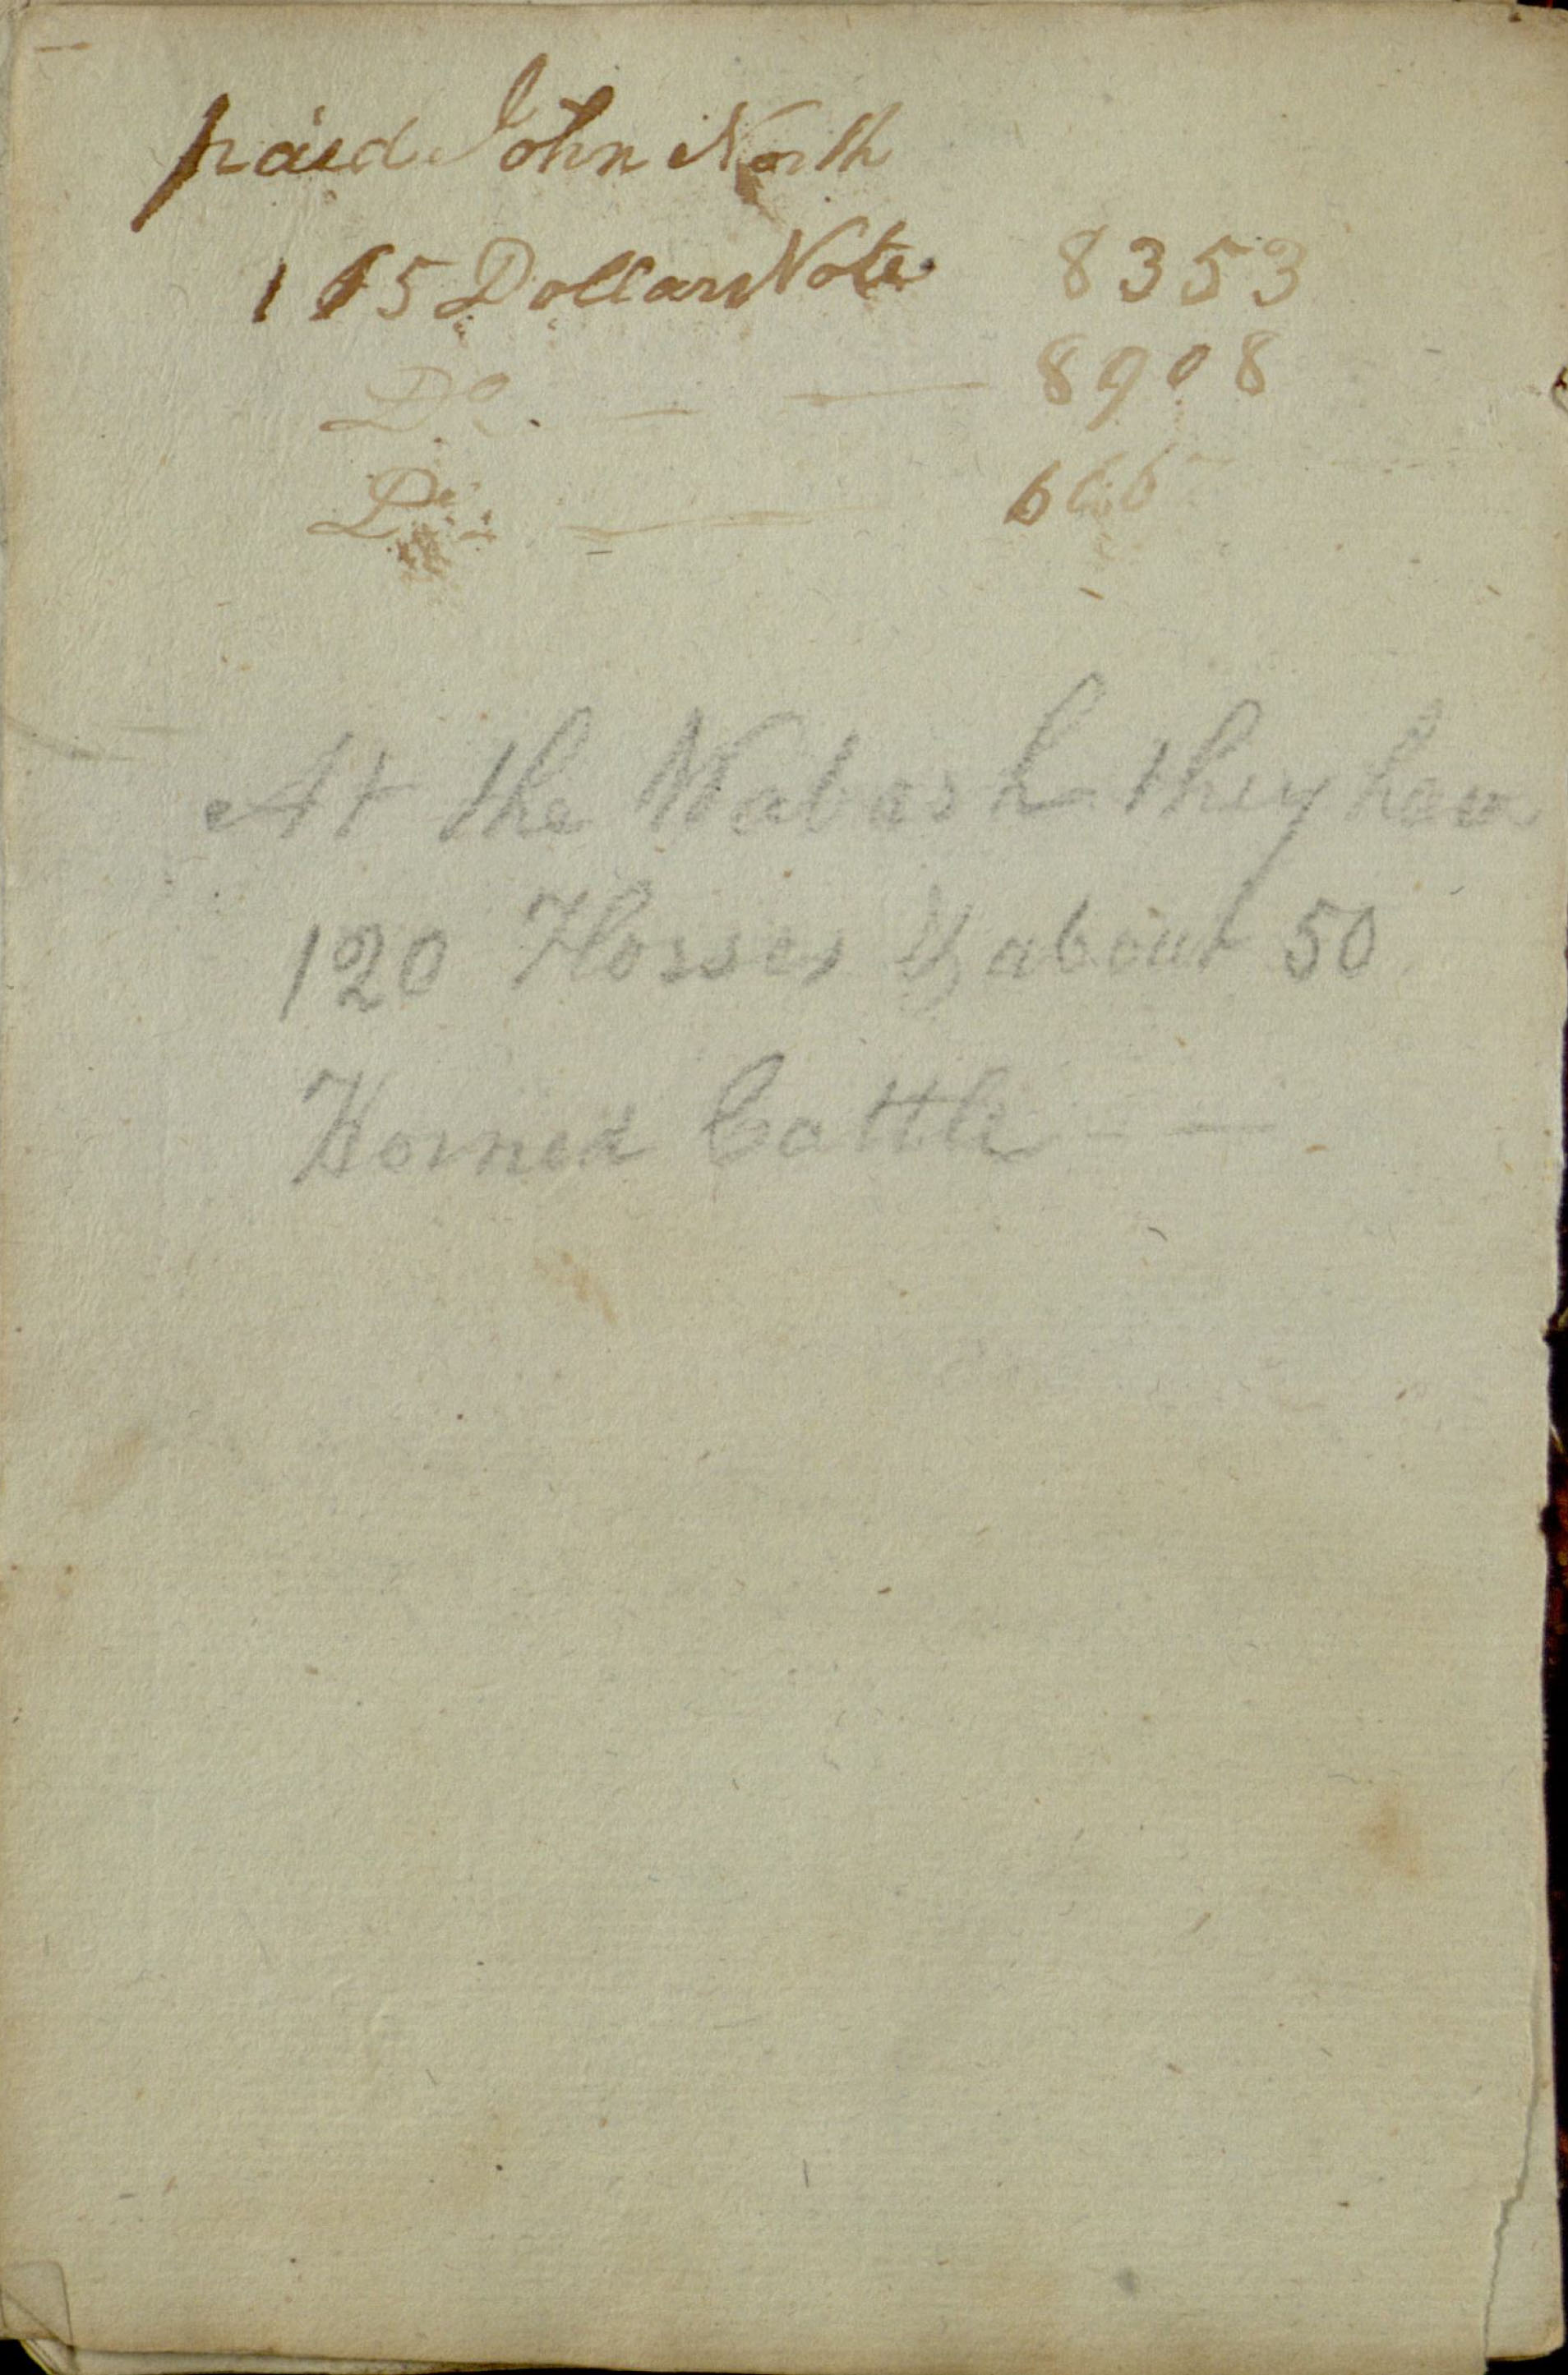 paied John North
1 5 Dollars Note 8353
Do. — — 8908
Do — — 666
At the Wabash they have
120 Horses & about 50
Horned Cattle - —